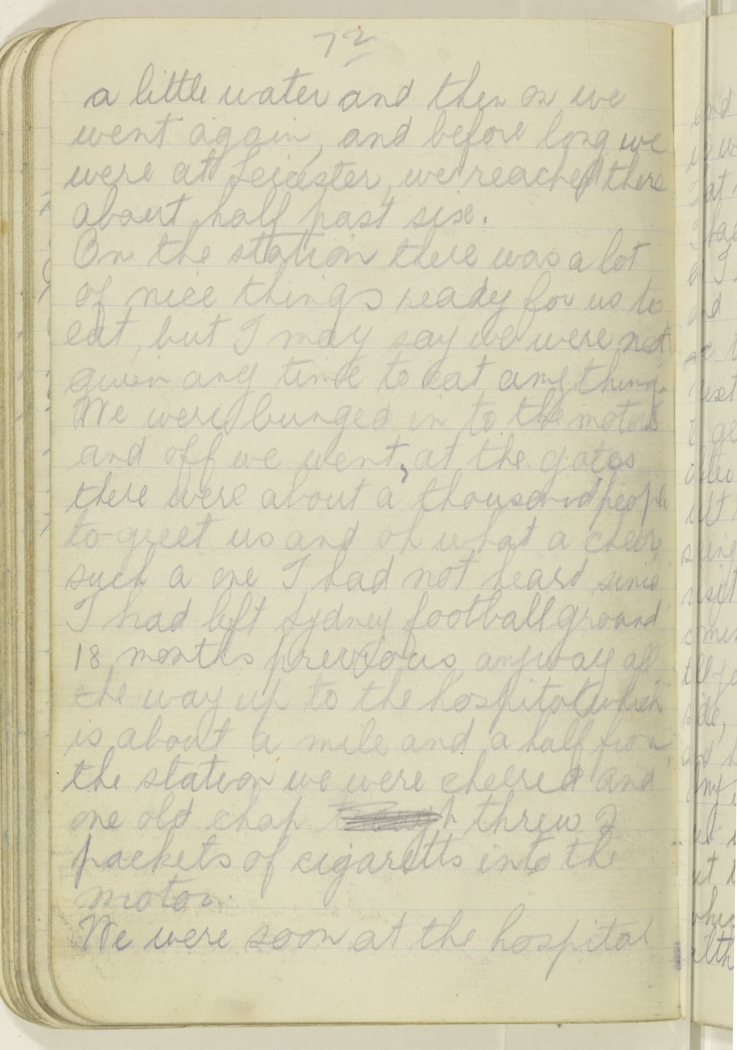 72
a little water and then on we
went again, and before long we
were at Leicester, we reached there
about half past six.
On the station there was a lot
of nice things ready for us to
eat, but I may say we were not
given any time to eat anything.
We were bunged in to the motors
and off we went, at the gates
there were about a thousand people
to greet us and oh what a cheer,
such a one I had not heard since
I had left Sydney football ground
18 months previous anyway all
the way up to the hospital which
is about a mile and a half from
the station we were cheered and
one old chap threw 2
packets of cigaretts into the
motor.
We were soon at the hospital